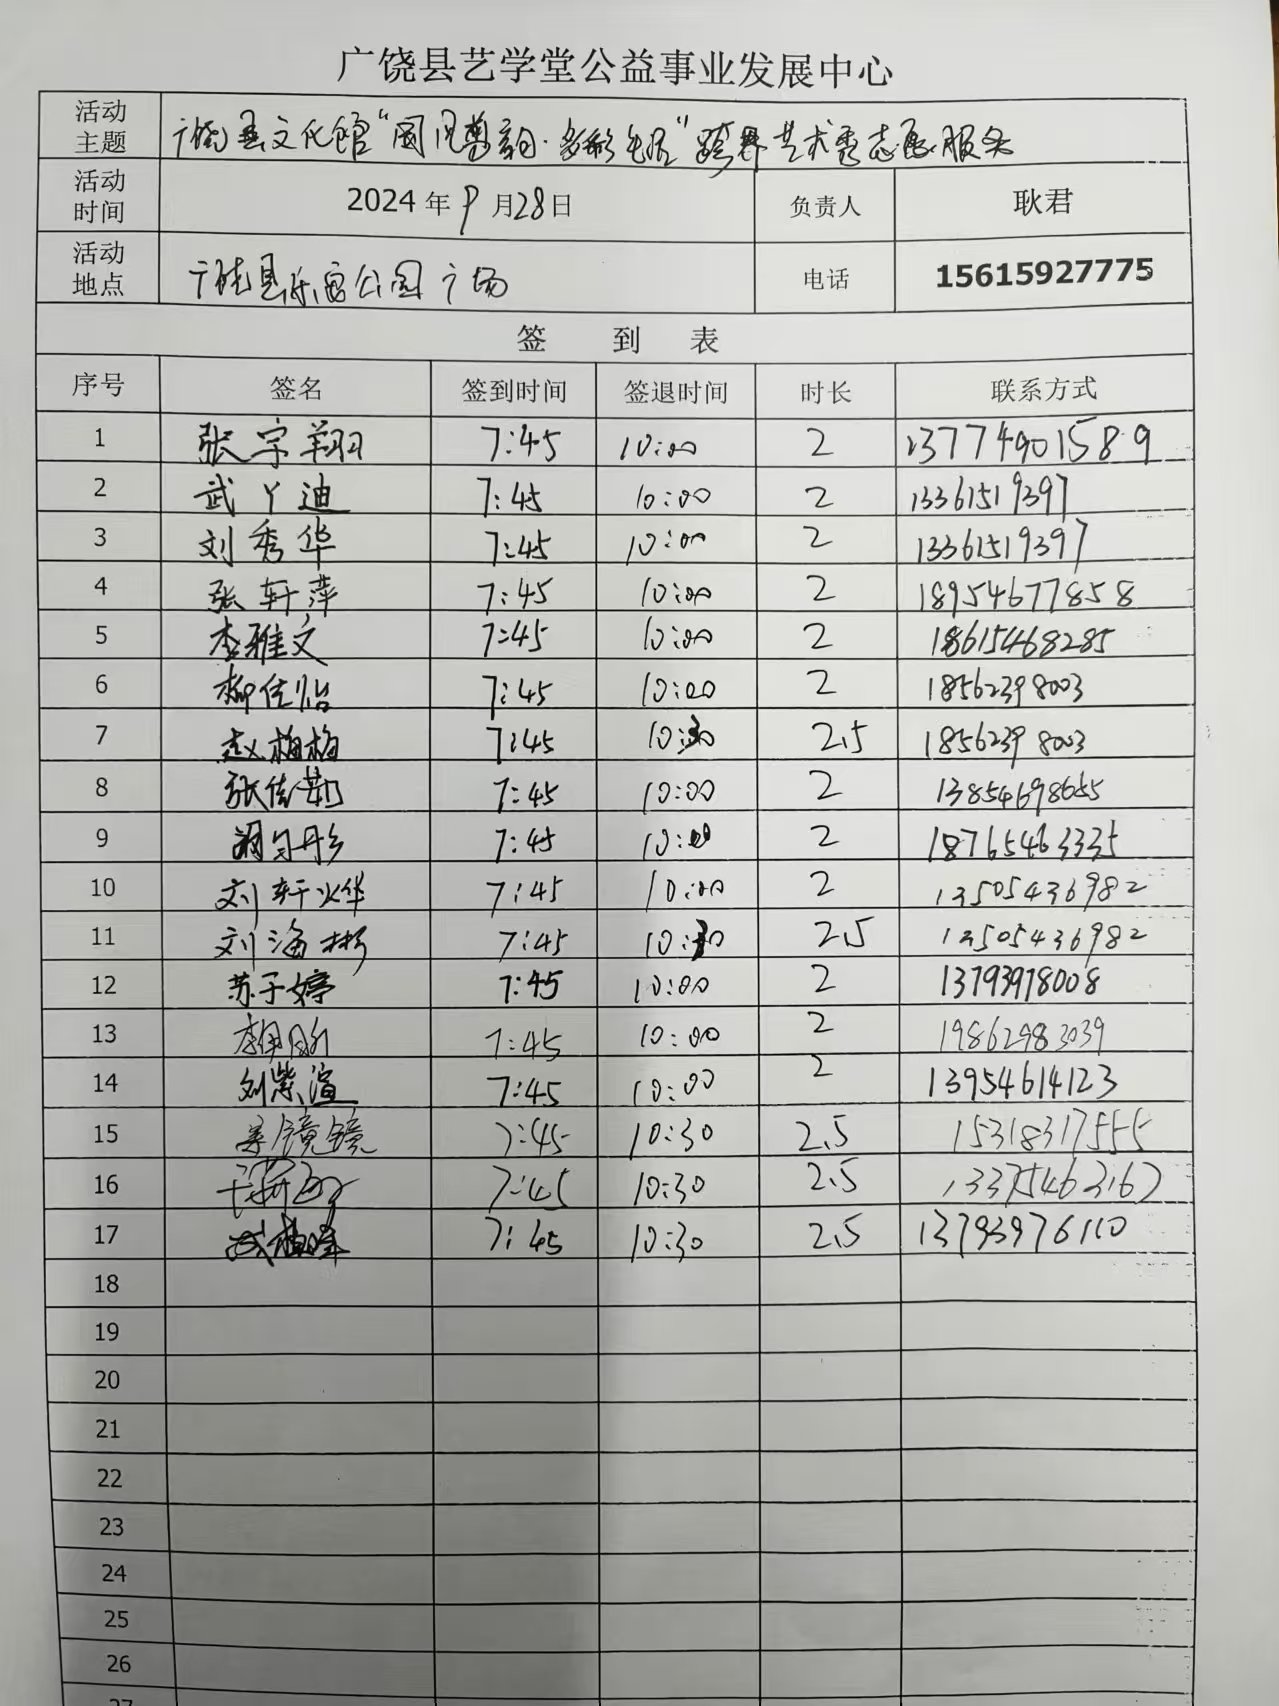 广饶县艺学堂公益事业发展中心
活动主题 广饶县文化馆“国风 韵·多彩 ”跨界艺术 志愿服务
活动时间 2024年9月28日 负责人 耿君
活动地点 广饶县乐安公园广场 电话 15615927775
签 到 表
序号 签名 签到时间 签退时间 时长 联系方式
1 张宇翔 7:45 10:00 2 13774901589
2 武丫迪 7:45 10:00 2 13361519397
3 刘秀华 7:45 10:00 2 13361519397
4 张轩萍 7:45 10:00 2 18954677858
5 李雅文 7:45 10:00 2 18615468285
6 柳佳怡 7:45 10:00 2 18562398003
7 赵梅梅 7:45 10:30 2.5 18562398003
8 张佳茹 7:45 10:00 2 13854698655
9 7:45 10:00 2 18765463335
10 刘轩烨 7:45 10:00 2 13505436982
11 刘海彬 7:45 10:30 2.5 13505436982
12 苏子婷 7:45 10:00 2 13793978008
13 7:45 10:00 2 19862983039
14 刘紫渲 7:45 10:00 2 13954614123
15 镜镜 7:45 10:30 2.5 15318317555
16 7:45 10:30 2.5 13375463167
17 7:45 10:30 2.5 13793976110
18
19
20
21
22
23
24
25
26
27